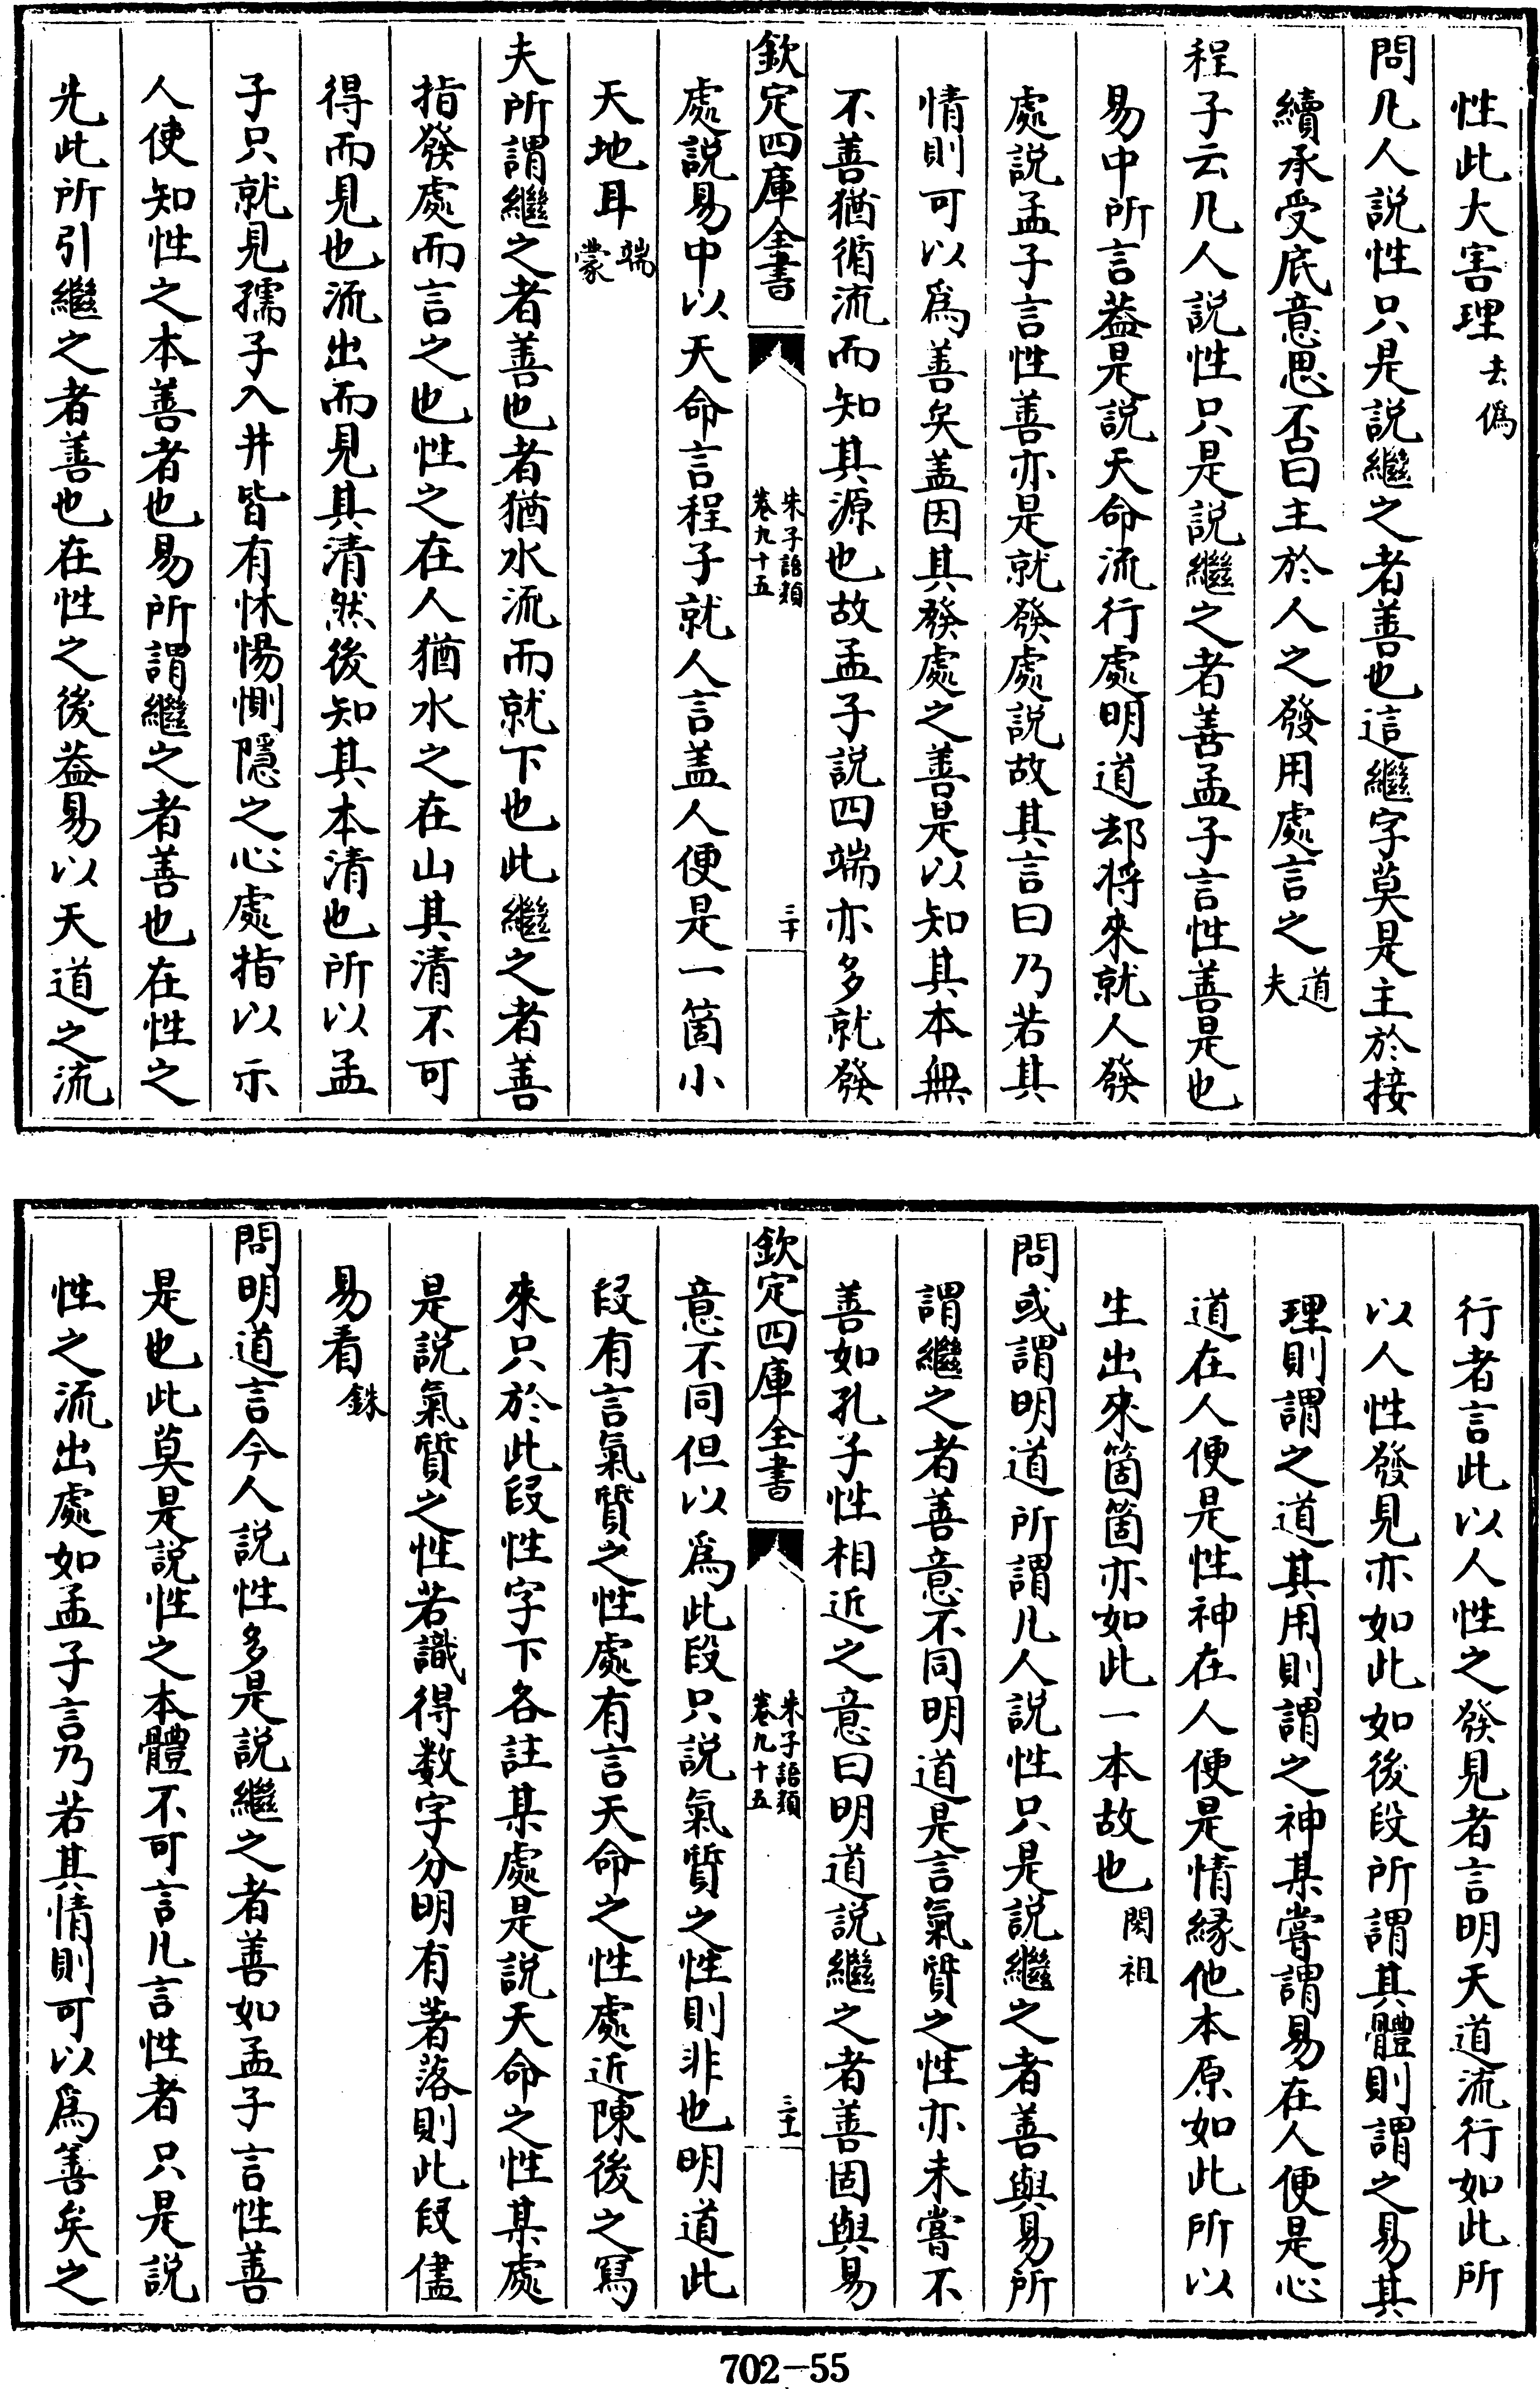 性此大害理去偽
問凡人說性只是說繼之者善也這繼字莫是主於接
續承受底意思否曰主於人之發用處言之道夫
程子云凡人說性只是說繼之者善孟子言性善是也
易中所言葢是說天命流行處明道却將來就人發
處說孟子言性善亦是就發處說故其言曰乃若其
情則可以爲善矣盖因其發處之善是以知其本無
不善猶循流而知其源也故孟子說四端亦多就發
欽定四庫全書
朱子語類
卷九十五
三十
處說易中以天命言程子就人言盖人便是一箇小
天地耳端蒙
夫所謂繼之者善也者猶水流而就下也此繼之者善
指發處而言之也性之在人猶水之在山其清不可
得而見也流出而見其清然後知其本清也所以孟
子只就見孺子入井皆有怵惕惻隱之心處指以示
人使知性之本善者也易所謂繼之者善也在性之
先此所引繼之者善也在性之後葢易以天道之流
行者言此以人性之發見者言明天道流行如此所
以人性發見亦如此如後段所謂其體則謂之易其
理則謂之道其用則謂之神某嘗謂易在人便是心
道在人便是性神在人便是情緣他本原如此所以
生出來箇箇亦如此一本故也閎祖
問或謂明道所謂凡人說性只是說繼之者善與易所
謂繼之者善意不同明道是言氣質之性亦未嘗不
善如孔子性相近之意曰明道說繼之者善固與易
欽定四庫全書
朱子語類
卷九十五
三十一
意不同但以爲此段只說氣質之性則非也明道此
段有言氣質之性處有言天命之性處近陳後之寫
來只於此段性字下各註某處是說天命之性某處
是說氣質之性若識得数字分明有著落則此段儘
易看銖
問明道言今人說性多是說繼之者善如孟子言性善
是也此莫是說性之本體不可言凡言性者只是說
性之流出處如孟子言乃若其情則可以爲善矣之
702-55